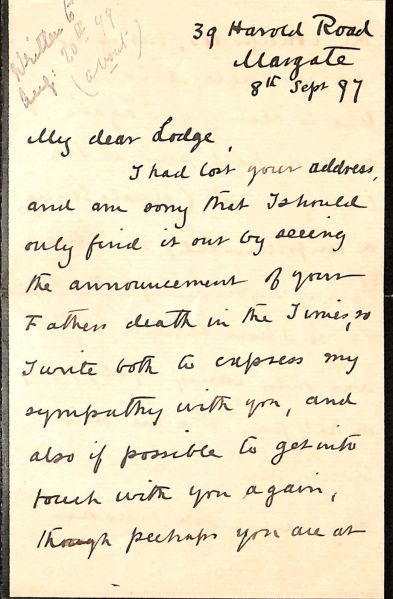 Written to
Aug: 20th 99
(about)
39 Harold Road
Margate
8th Sept 97
My dear Lodge,
I had lost your address,
and am sorry that I should
only find it out by seeing
the announcement of your
Fathers death in the Times, so
I write both to express my
sympathy with you, and
also if possible to get into
touch with you again,
though perhaps you are at